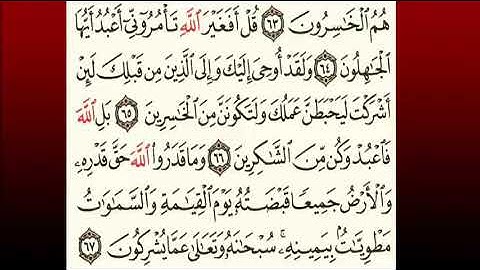 هُمُ الْخَاسِرُونَ ٦٣ قُلْ أَفَغَيْرَ اللَّهِ تَأْمُرُونِّي أَعْبُدُ أَيُّهَا
الْجَاهِلُونَ ٦٤ وَلَقَدْ أُوحِيَ إِلَيْكَ وَإِلَى الَّذِينَ مِن قَبْلِكَ لَئِنْ
أَشْرَكْتَ لَيَحْبَطَنَّ عَمَلُكَ وَلَتَكُونَنَّ مِنَ الْخَاسِرِينَ ٦٥ بَلِ اللَّهَ
فَاعْبُدْ وَكُن مِّنَ الشَّاكِرِينَ ٦٦ وَمَا قَدَرُوا اللَّهَ حَقَّ قَدْرِهِ
وَالْأَرْضُ جَمِيعًا قَبْضَتُهُ يَوْمَ الْقِيَامَةِ وَالسَّمَاوَاتُ
مَطْوِيَّاتٌ بِيَمِينِهِ ۚ سُبْحَانَهُ وَتَعَالَى عَمَّا يُشْرِكُونَ ٦٧